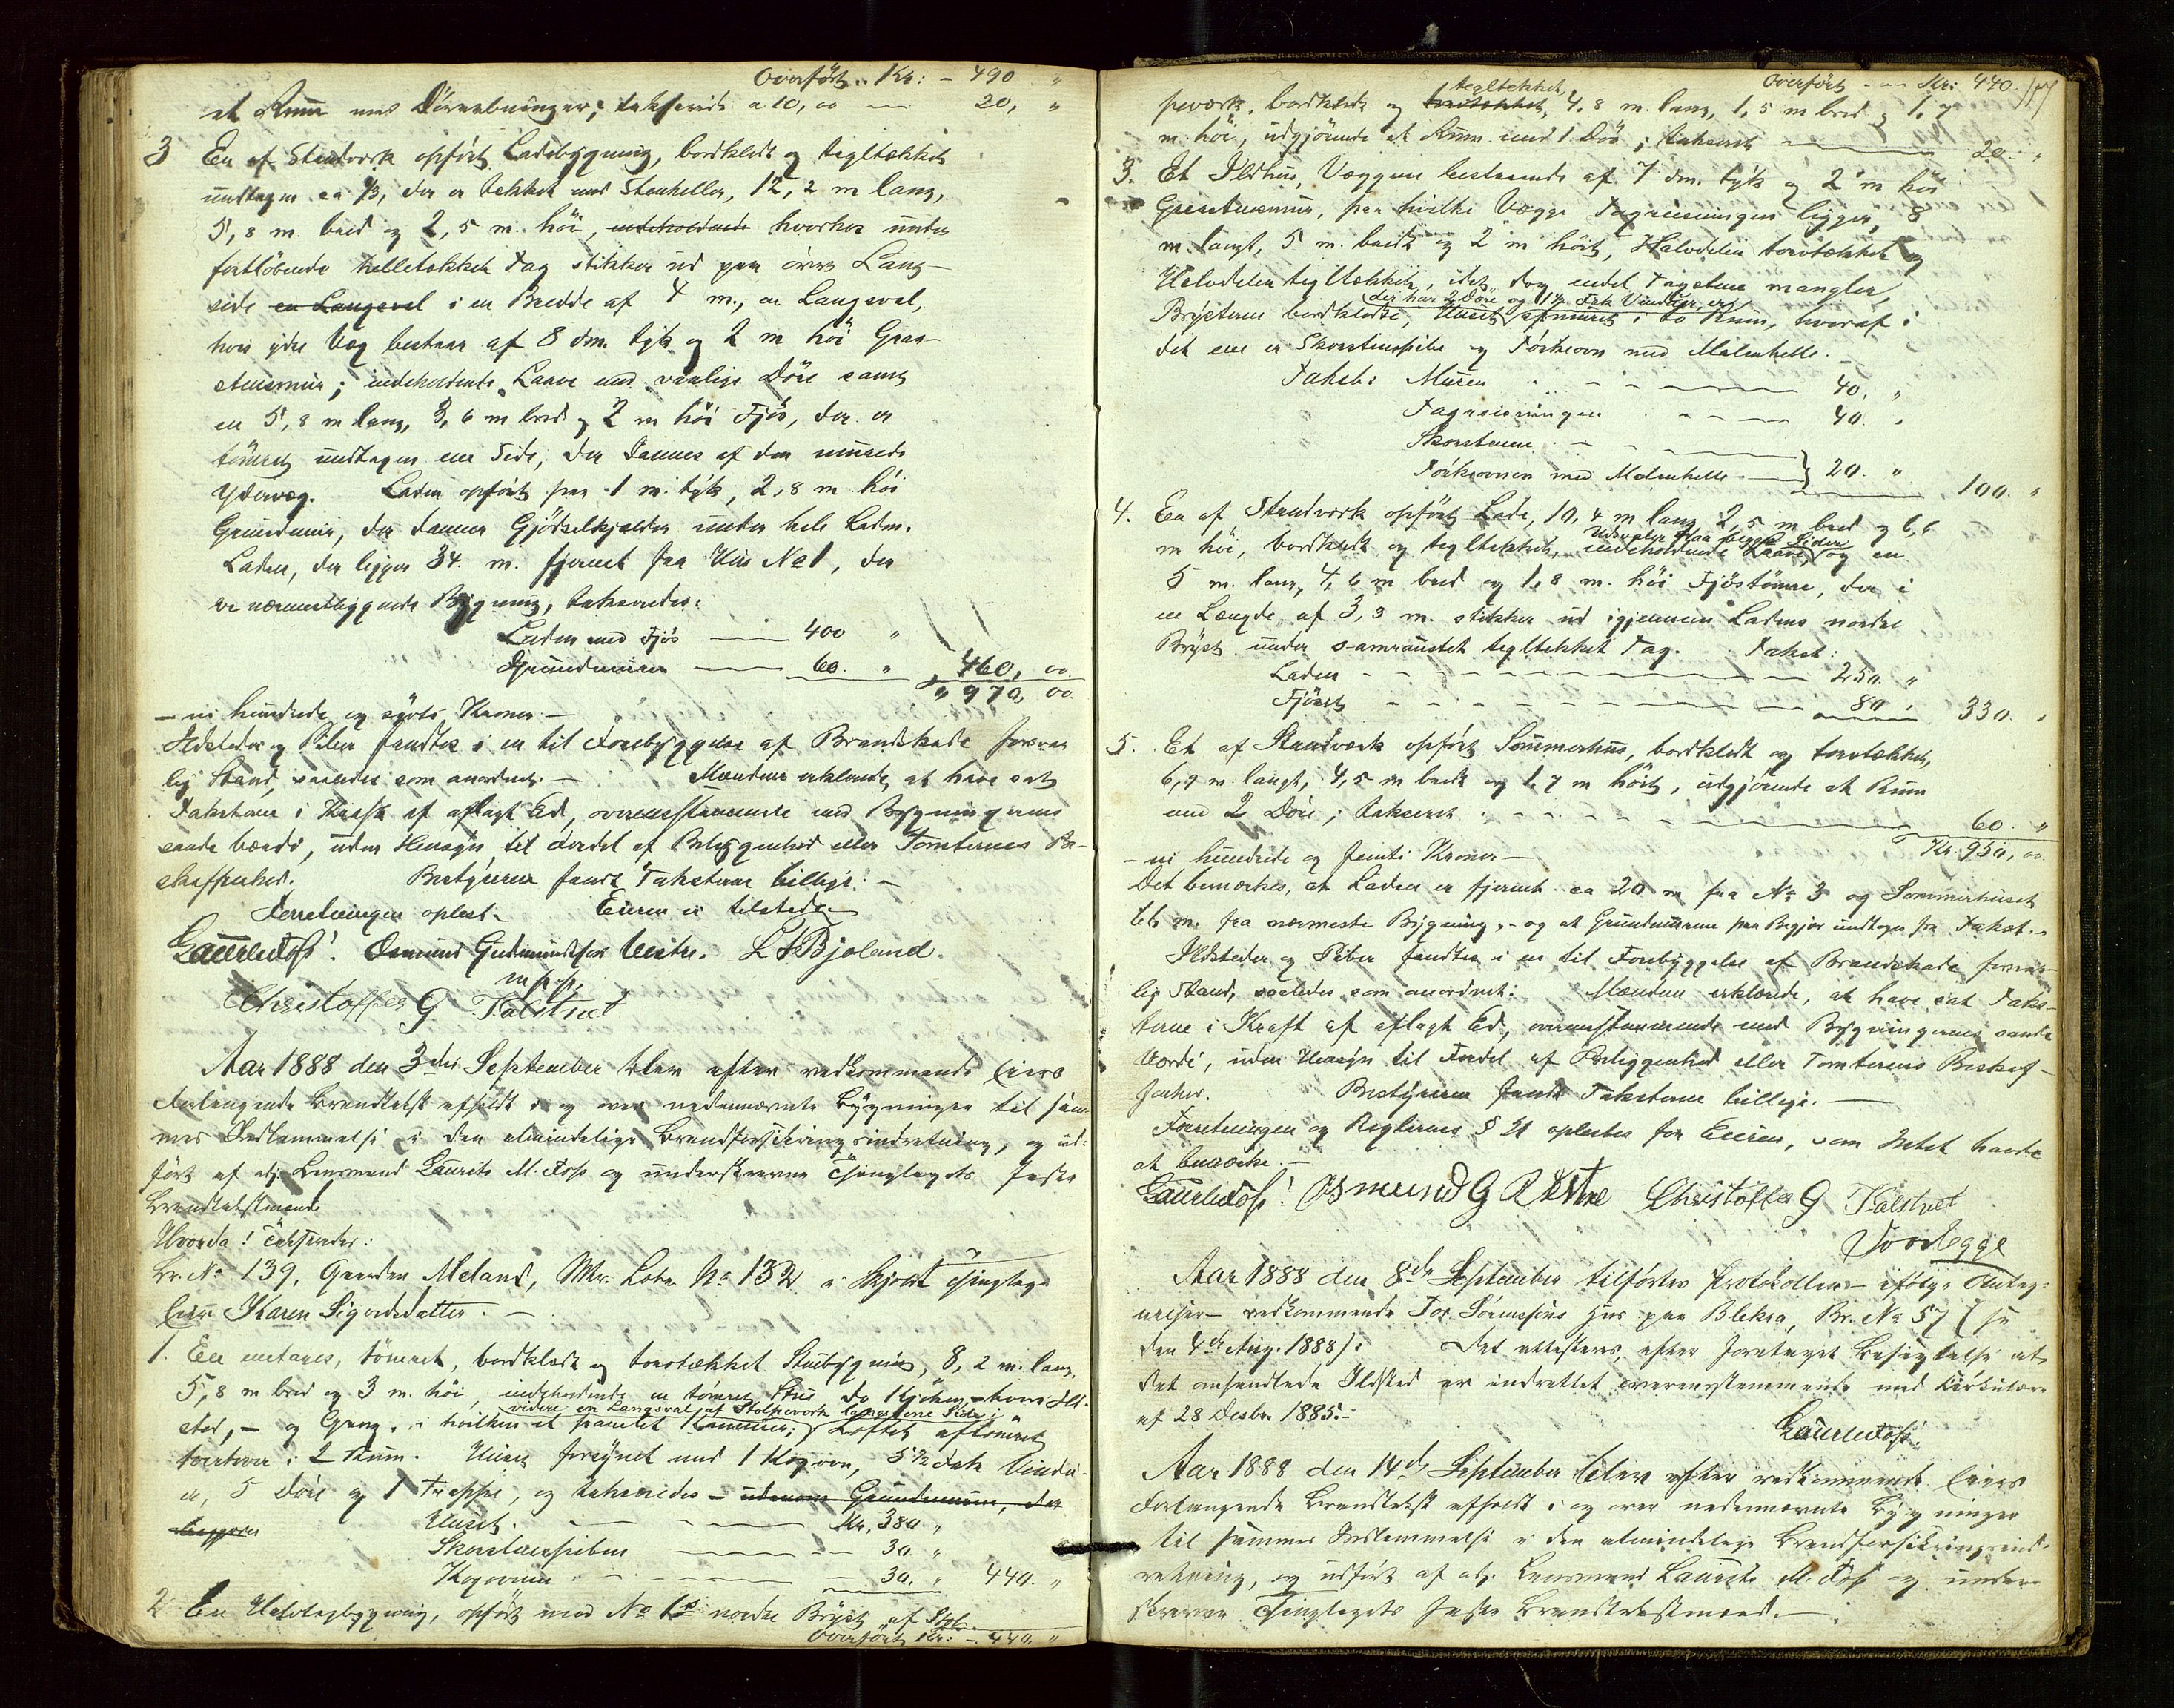 Overført .. Kr: - 490 "
et Rum med Døraabninger; takserede a 10,00 — 20, "
3 En af Stavværk opført Ladebygning, bordklædt og tegltækket
undtagen ca 1/3, der er tækket med Stenheller, 12,2 m lang,
5,8 m. bred og 2,5 m. høi, indeholdende hvorhos under
fortløbende helletækket Tag stikker ud paa øvre Lang-
side en Langsval i en Bredde af 4 m., en Langsval,
hvis ydre Væg bestaar af 8 dm. tyk og 2 m høi Graa-
stensmur; indeholdende Laave med vanlige Døre samt
en 5,8 m lang, 3,6 m bred og 2 m høi Fjøs, der er
tømret undtagen ene Side, der dannes af den murede
Ydervæg. Laden opført paa 1 m. tyk, 2,8 m høi
Grundmur, der danner Gjødselkjælder under hele Laden.
Laden, der ligger 34 m. fjernet fra Hus No 1, der
er nærmestliggende Bygning, takseredes:
Laden med Fjøs — 400 "
Grundmuren — 60. " 460, 00.
" 970, 00.
- ni hundrede og sytti Kroner -
Ildsteder og Piber fandtes i en til Forebyggelse af Brandskade forsvar-
lig Stand, saaledes som anordnet. - Mændene erklærede, at have sat
Taksterne i Kraft af aflagt Ed, overensstemmende med Bygningernes
sande Værdi, uden Hensyn til Fordel af Beliggenhed eller Tomternes Be-
skaffenhed. Bestyreren fandt Taksterne billige. -
Forretningen oplæst. Eieren ei tilstede.
LaursMFoss! Osmund Gudmundsen Vestre. L S Bjoland.
m f p p,
Christoffer G Kalstvet
Aar 1888 den 3die September blev efter vedkommende Eiers
Forlangende Brandtakst afholdt i og over nedennævnte Bygninger til sam-
mes Indlemmelse i den almindelige Brandforsikringsindretning, og ud-
ført af adj. Lensmand Laurits M. Foss og underskrevne Thinglagets faste
Brandtakstmænd.
Hvorda! Takseredes:
Br. No 139, Gaarden Meland, Mtr. Løbe No 132 i Skjold Thinglag
Eier Karen Sigurdsdatter. -
1. En eetages, tømret, bordklædt og torvtækket Stuebygning, 8,2 m. lang,
5,8 m bred og 3 m. høi, indeholdende en tømret Stue do Kjøken, - hvori Ild-
videre en Langsval af Stolpeværk langs ene Side;
sted, - og Gang, i hvilken et panelet Kammer; Loftet aftømret
tvertover i 2 Rum. Huset forsynet med 1 Kogovn, 5 1/2 Fak Vindu-
er, 5 Døre og 1 Trappe, og takseredes - udenom Grundmuren, der
Huset. - - - Kr. 380 "
Skorstenspiben — — 30. "
Kogovnen - — 30. " 440. "
2 En Udhusbygning, opført mod No 1s nordre Bryst af Stol-
Overført Kr: - 440. "
Overført - - Kr: 440. 177
tegltækket,
peværk, bordklædt og torvtækket, 4,8 m. lang, 1,5 m bred og 1,7
m. høi, udgjørende et Rum med 1 Dør; takseret — 20. "
3. Et Ildhus, Væggene bestaaende af 7 dm. tyk og 2 m høi
Graastensmur, paa hvilke Vægge Tagreisningen ligger, 8
m. langt, 5 m. bredt og 2 m høit, Halvdelen torvtækket og
Halvdelen tegltækket, idet dog endel Tagstene mangler,
der har 2 Døre og 1 1/2 Fak Vinduer, er
Brystene bordklædte, Huset afmuret i to Rum, hvoraf i
det ene er Skorstenspibe og Tørkeovn med Malmhelle.
Takst: Muren - - - — 40, "
Tagreisningen - - — 40. "
Skorstenen - -
Tørkeovnen med Malmhelle — } 20. " 100. "
4. En af Stavværk opført Lade, 10,4 m lang, 2,5 m bred og 6,6
Udsvaler paa begge Sider
m høi, bordklædt og tegltækket, indeholdende Laave, og en
5 m. lang, 4,6 m bred og 1,8 m. høi Fjøstømre, der i
en Længde af 3,3 m. stikker ud igjennem Ladens nordre
Bryst under samraustet tegltækket Tag. Takst:
Laden - - - 250. "
Fjøset - - - 80 " 330. "
5. Et af Stavværk opført Sommerhus, bordklædt og torvtækket,
6,7 m. langt, 4,5 m bredt og 1,7 m høit, udgjørende et Rum
med 2 Døre; takseret - - - 60. "
Kr. 950, 00.
- ni hundrede og femti Kroner -
Det bemærkes, at Laden er fjernet ca 20 m fra No 3 og Sommerhuset
66 m. fra nærmeste Bygning, - og at Grundmurene paa Begjær undtages fra Takst. -
Ildsteder og Piber fandtes i en til Forebyggelse af Brandskade forsvar-
lig Stand, saaledes som anordnet: Mændene erklærede, at have sat Taks-
terne i Kraft af aflagt Ed, overensstemmende med Bygningernes sande
Værdi, uden Hensyn til Fordel af Beliggenhed eller Tomternes Beskaf-
fenhed. Bestyreren fandt Taksterne billige. —
Forretningen og Reglernes § 21 oplæstes for Eieren, som Intet havde
at bemærke. -
LaursMFoss! Osmund G Vestre Christoffer G Kalstvet
Vorlegge
Aar 1888 den 8de September tilførtes Protokollen - ifølge Anteg-
nelser - vedkommende Tor Sørensens Hus paa Bleksa, Br. No 57 (se
den 4de Aug. 1888): Det attesteres, efter foretaget Besigtelse at
det omhandlede Ildsted er indrettet overensstemmende med Cirkulære
af 28 Desbr. 1885. -
LaursMFoss.
Aar 1888 den 14de September blev efter vedkommende Eiers
Forlangende Brandtakst afholdt i og over nedennævnte Bygninger
til sammes Indlemmelse i den almindelige Brandforsikringsind-
retning, og udført af adj. Lensmand Laurits M. Foss og under-
skrevne Thinglagets faste Brandtakstmænd. -